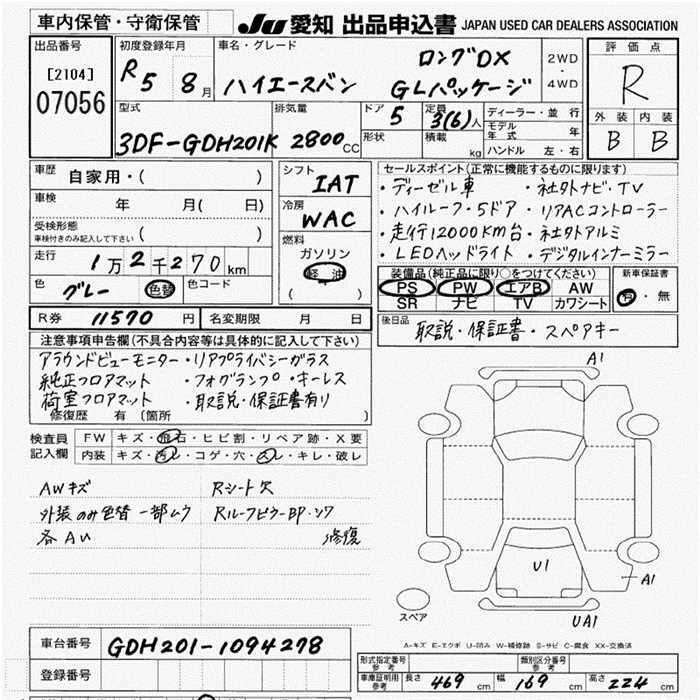 車内保管・守衛保管
JU 愛知 出品申込書 JAPAN USED CAR DEALERS ASSOCIATION
出品番号
[2104]
07056
初度登録年月
R5 8月
車名・グレード
ハイエースバン
ロングDX
GLパッケージ
2WD
・
4WD
評価点
R
外装 内装
B B
型式
3DF-GDH201K
排気量
2800cc
ドア
5
定員
3(6)人
形状
積載
kg
ディーラー・並行
モデル年式 年
ハンドル 左・右
車歴 自家用・( )
車検 年 月( 日)
受検形態
車検付きのみ記入して下さい ( )
走行 1万2千270km
色 グレー 色替 色コード
シフト
IAT
冷房
WAC
燃料
ガソリン
軽油
( )
セールスポイント(正常に機能するものに限ります)
・ディーゼル車 ・社外ナビ・TV
・ハイルーフ・5ドア ・リアACコントローラー
・走行12000km台 ・社外アルミ
・LEDヘッドライト ・デジタルインナーミラー
装備品(純正品に限り○をつけてください)
PS PW エアB AW
SR ナビ TV カワシート
新車保証書
有・無
R券 11570円 名変期限 月 日
後日品 取説・保証書・スペアキー
注意事項申告欄(不具合内容等は具体的に記入して下さい)
アラウンドビューモニター ・リアプライバシーガラス
純正フロアマット ・フォグランプ ・キーレス
荷室フロアマット ・取説・保証書有り
修復歴 有 (箇所 )
検査員
記入欄
FW キズ・飛石・ヒビ割・リペア跡・X要
内装 キズ・汚レ・コゲ・穴・スレ・キレ・破レ
AWキズ Rシート欠
外装のみ色替 一部ムラ Rルーフピラー・BP・シワ
各AU 修復
A1
U1
A1
UA1
スペア
A-キズ E-エクボ U-凹み W-補修跡 S-サビ C-腐食 XX-交換済
車台番号 GDH201-1094278
登録番号
形式指定番号
参考
類別区分番号
参考
車庫証明用
参考
長さ 469cm 幅 169cm 高さ 224cm